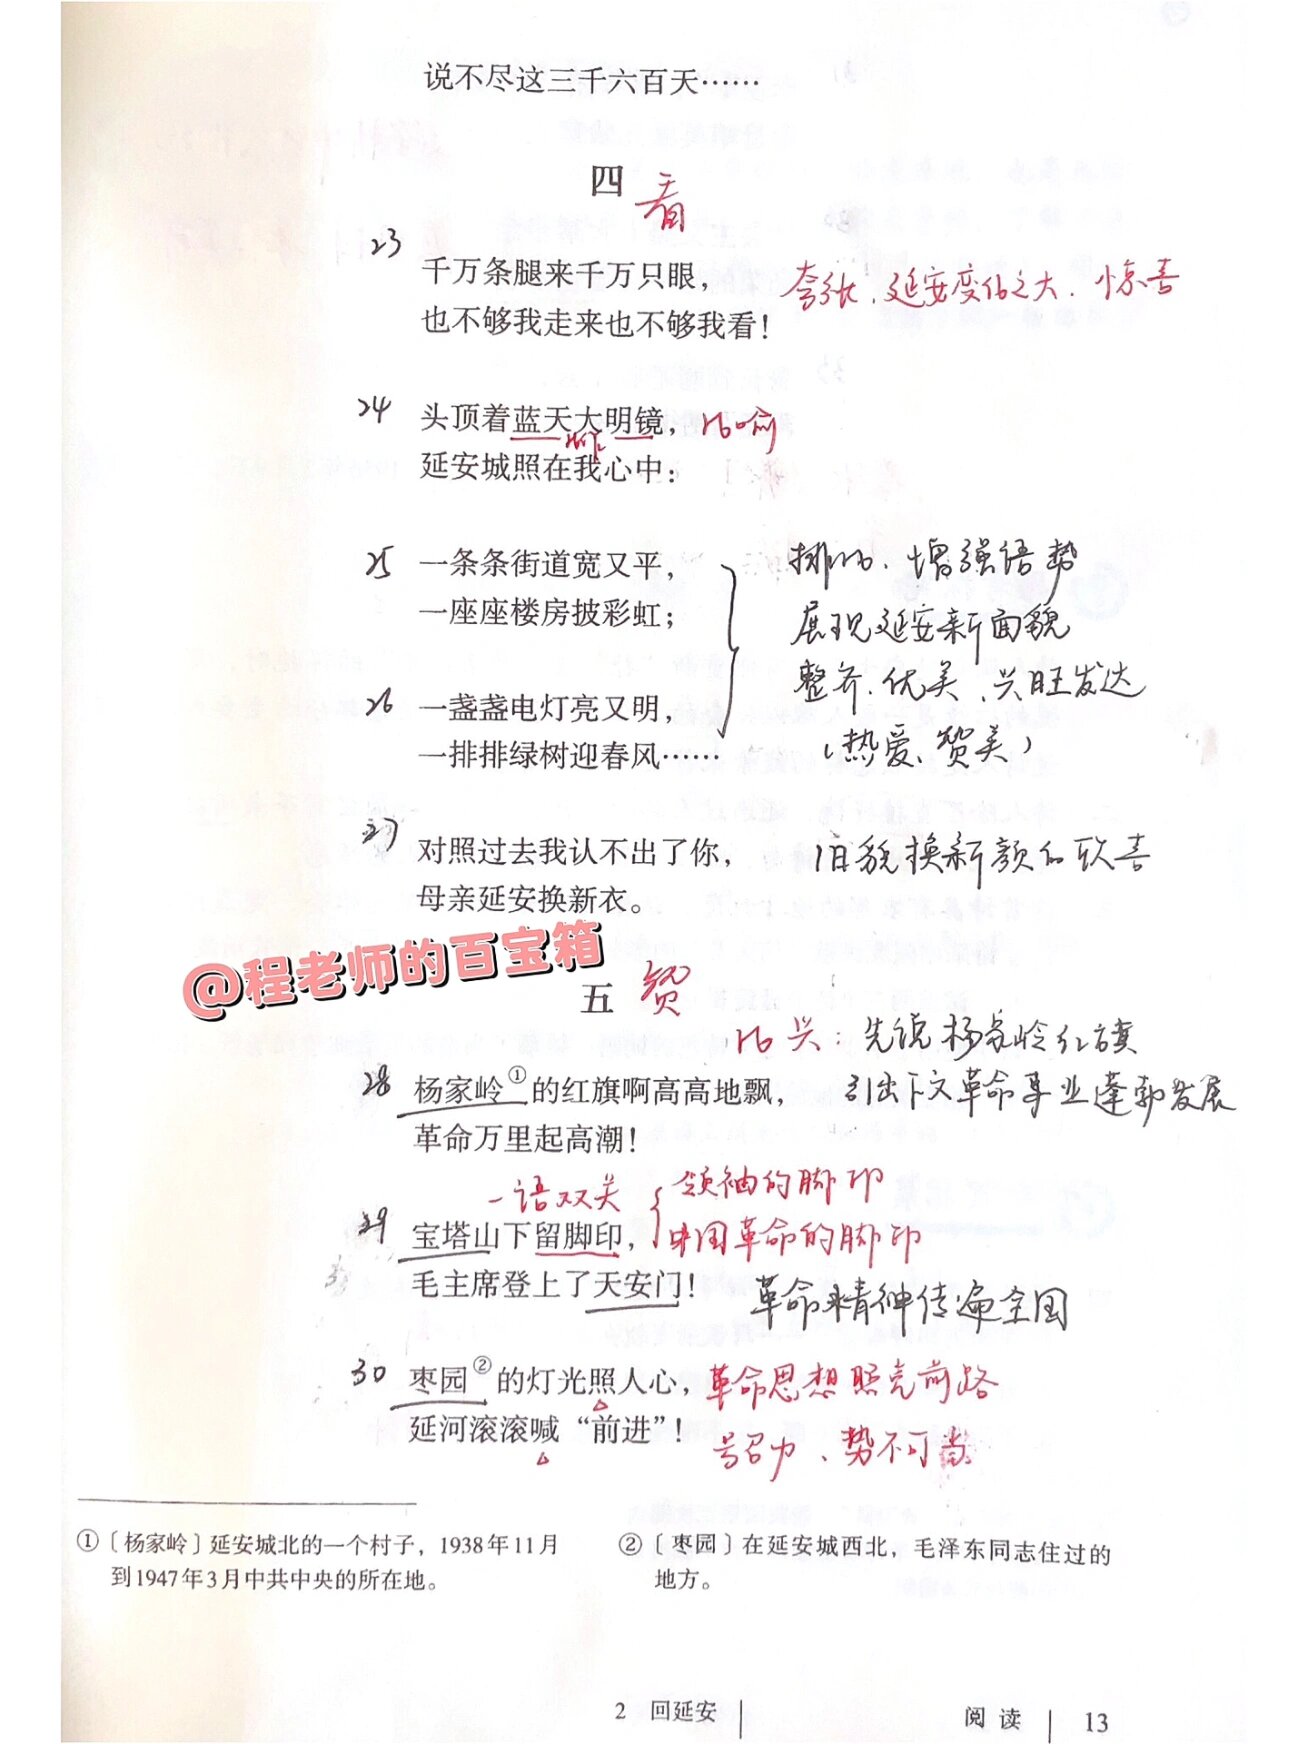 说不尽这三千六百天……
四 看
23
千万条腿来千万只眼，
夸张、延安变化之大、惊喜
也不够我走来也不够我看！
24 头顶着蓝天大明镜， 比喻
延安城照在我心中：
25 一条条街道宽又平，
排比、增强语势
一座座楼房披彩虹；
展现延安新面貌
整齐、优美、兴旺发达
26 一盏盏电灯亮又明，
一排排绿树迎春风……
（热爱、赞美）
27 对照过去我认不出了你，
旧貌换新颜的欣喜
母亲延安换新衣。
@程老师的百宝箱
五 赞
比兴：先说杨家岭红旗
28 杨家岭①的红旗啊高高地飘，
引出下文革命事业蓬勃发展
革命万里起高潮！
一语双关 领袖的脚印
29 宝塔山下留脚印， 中国革命的脚印
毛主席登上了天安门！
革命精神传遍全国
30 枣园②的灯光照人心， 革命思想照亮前路
延河滚滚喊“前进”！
号召力、势不可当
①〔杨家岭〕延安城北的一个村子，1938年11月
到1947年3月中共中央的所在地。
②〔枣园〕在延安城西北，毛泽东同志住过的
地方。
2 回延安
阅读 13